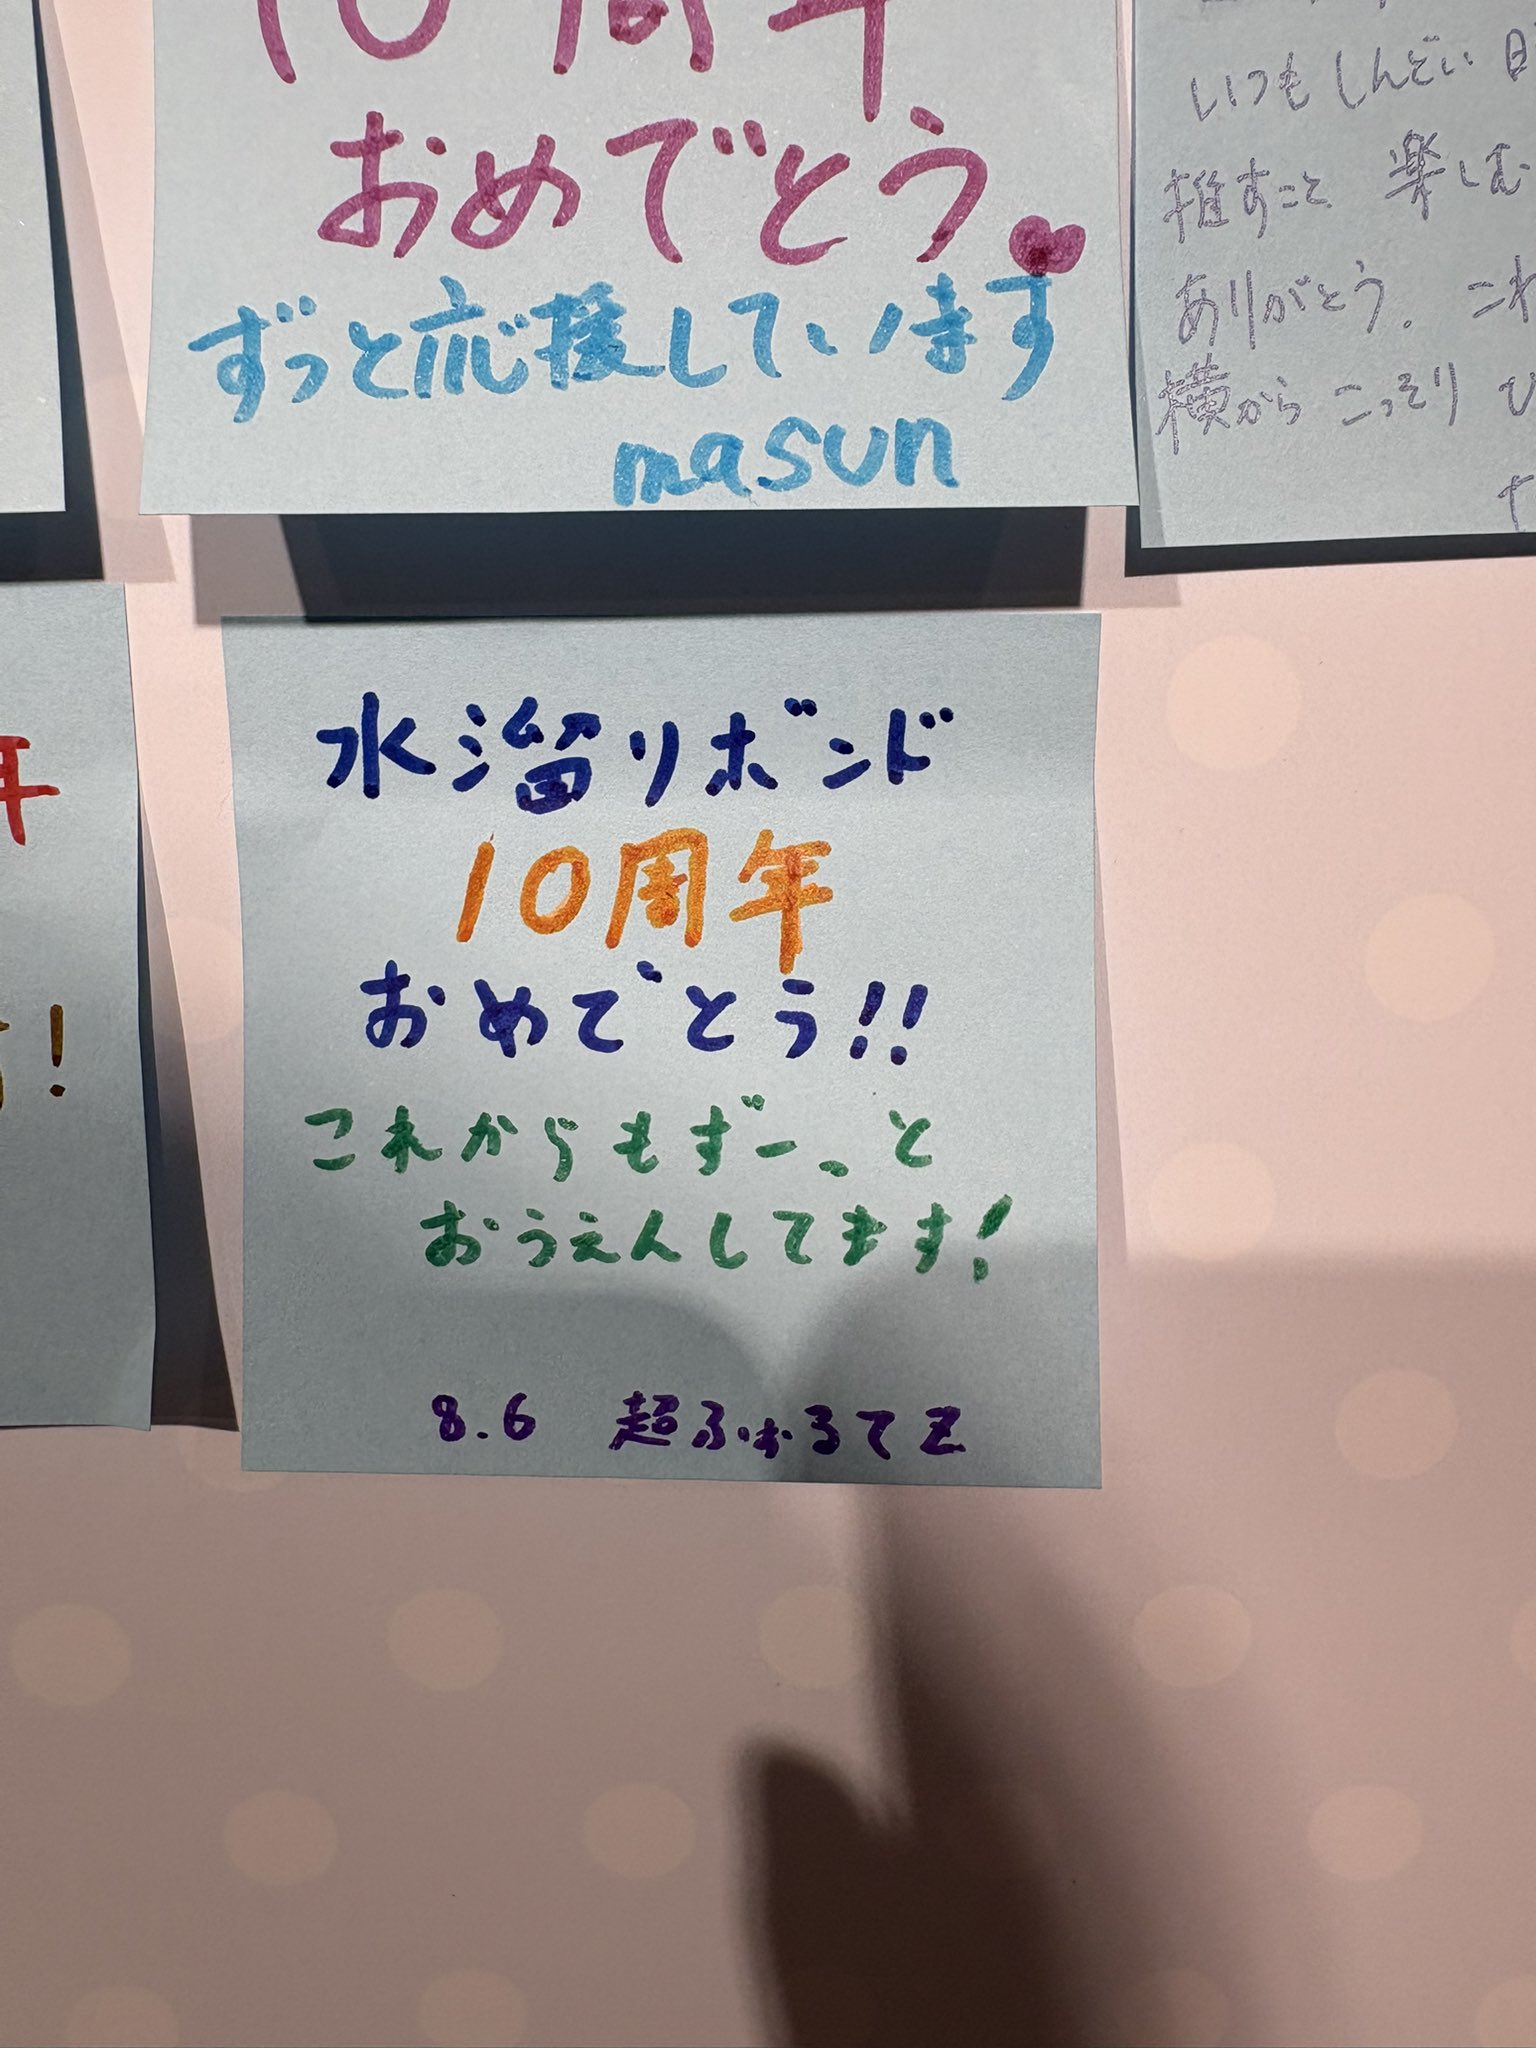 10周年
おめでとう
ずっと応援しています
masun
いつもしんどい日
推すこと 楽しむ
ありがとう。これ
横からこっそりひ
年
!
水溜りボンド
10周年
おめでとう!!
これからもずーっと
おうえんしてます!
8.6 超ふぉるてZ